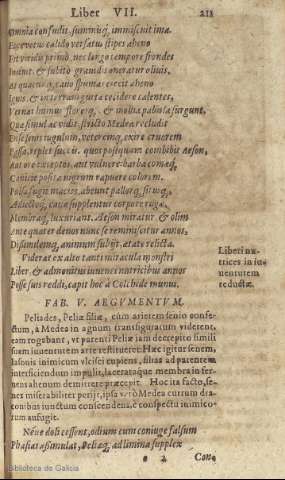 Liber VII. 211
Omnia confudit summisq́; immiscuit ima.
Ecce vetus calido versatus stipes aheno
Fit viridis primò, nec longo tempore frondes
Induit, & subitò gravidis oneratur olivis,
At quacunq; cavo spumas eiecit aheno
Ignis, & in terram guttæ cecidere calentes,
Vernat humus floresq́; & mollia pabula surgunt,
Quæ simul ac vidit, stricto Medea recludit
Ense senis iugulum, veteremq; exire cruorem
Passa, replet succis. quos postquam combibit Aeson,
Aut ore exceptos, aut vulnere: barba comæq́;
Canitie posita nigrum rapuere colorem.
Pulsa fugit macies, abeunt pallorq́; situsq́;
Adiectoq́; cavæ supplentur corpore rugæ,
Membraq́; luxuriant. Aeson miratur & olim
Ante quater denos hunc se reminiscitur annos,
Dissimilemq́; animum subijt, ætate relicta.
Viderat ex alto tanti miracula monstri
Liber, & admonitus iuvenes nutricibus annos
Posse suis reddi, capit hoc à Colchide munus.
Liberi nu-
trices in iu-
uentutem
reductæ.
FAB. V. ARGVMENTVM.
Peliades, Peliæ filiæ, cum arietem senio confe-
ctum, à Medea in agnum transfiguratum viderent,
eam rogabant, vt parenti Peliæ iam decrepito simili
suam iuuentutem arte restitueret. Hæc igitur senem,
Iasonis inimicum vlcisci cupiens, filias ad parentem
interficiendum impulit, lacerataque membra in fer-
uens ahenum demittere præcepit. Hoc ita facto, se-
nex miserabiliter perijt, ipsa verò Medea currum dra-
conibus iunctum conscendens, è conspectu inimico-
rum aufugit.
Néve doli cessent, odium cum coniuge falsum
Phasias assimulat, Peliæq́; ad limina supplex
2 Con-
Biblioteca de Galicia